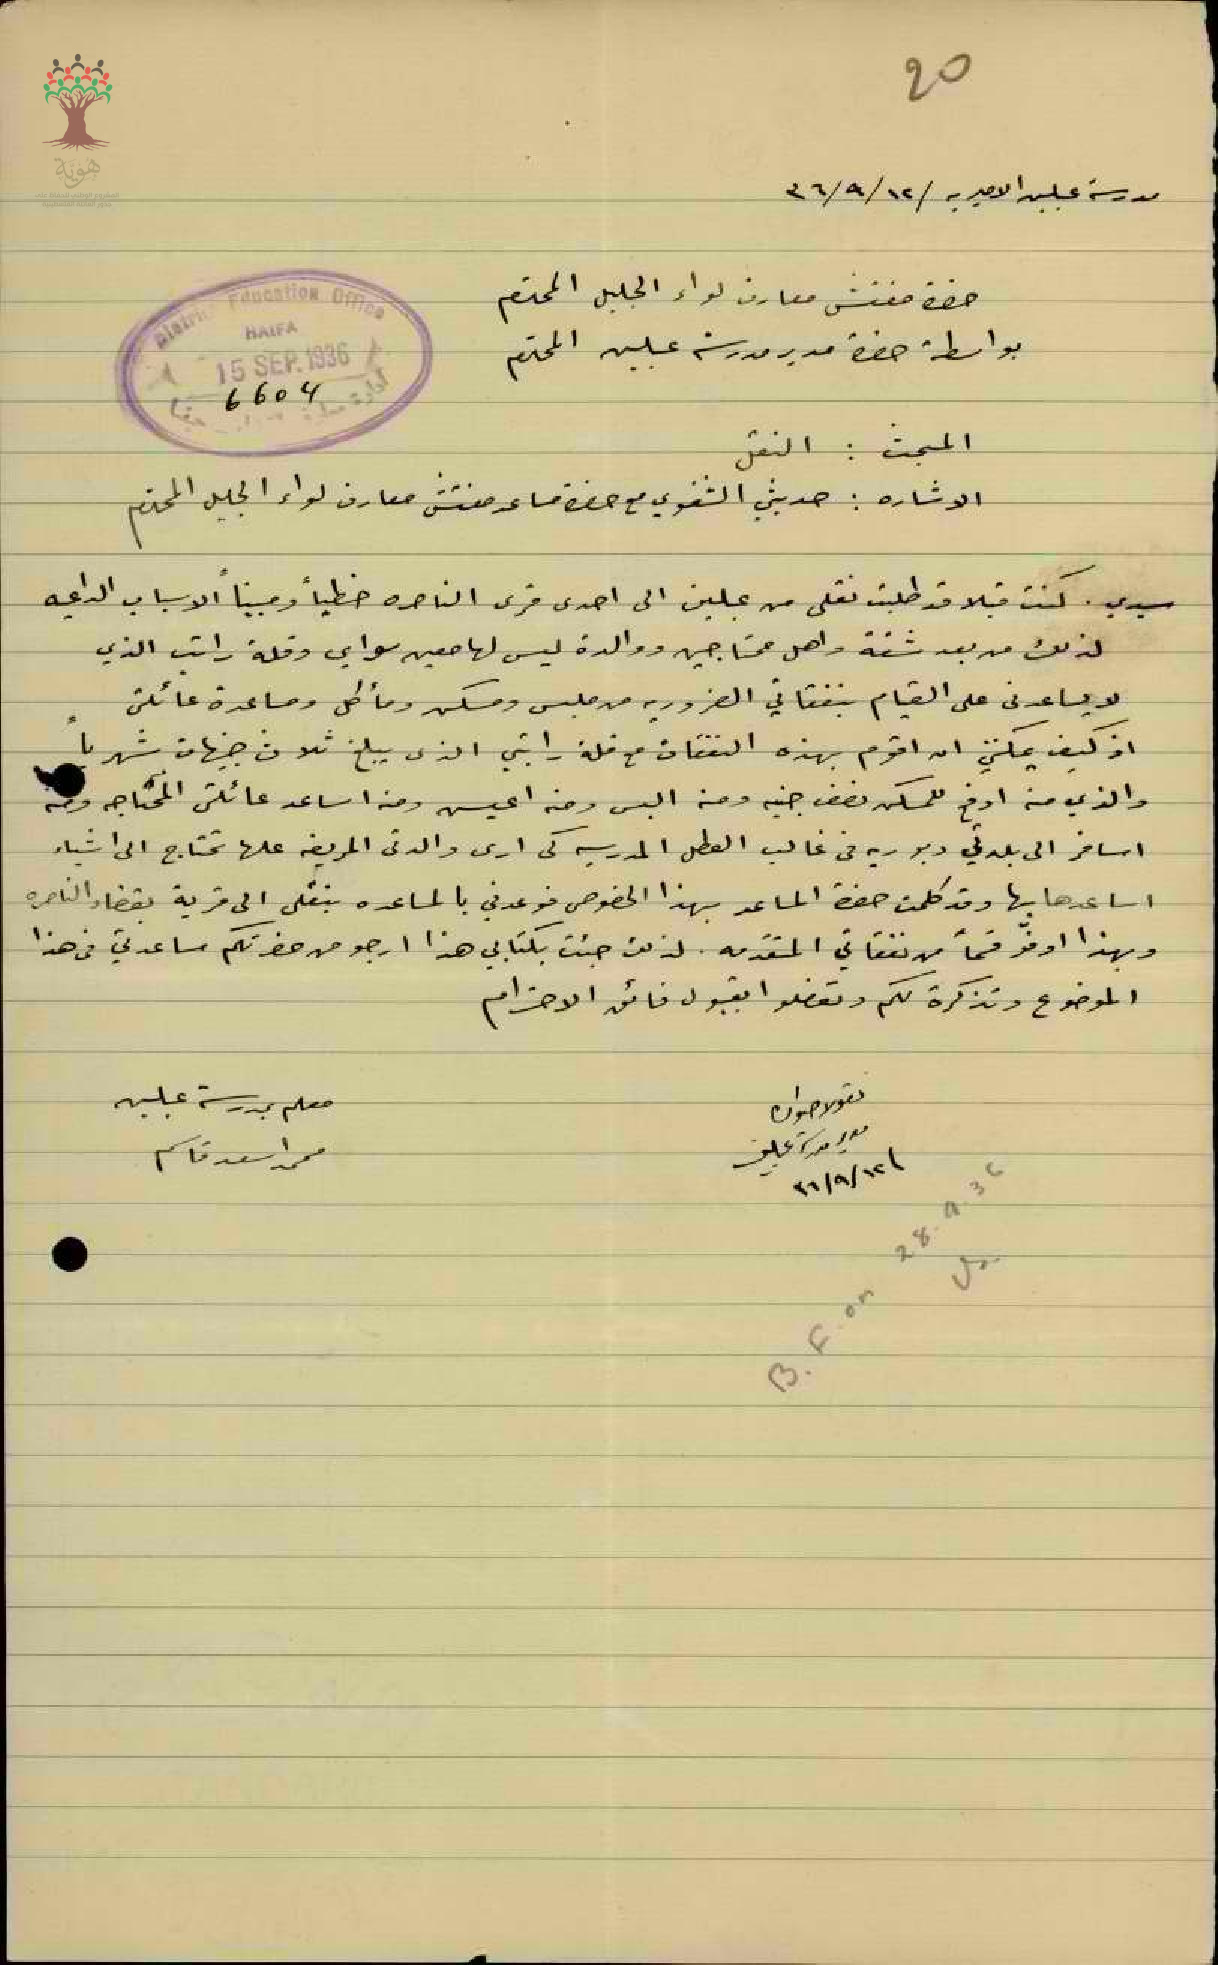 20
هوية
مدرسة عبلين الاميريه / ١٢/ ٩/ ٣٦
حضرة مفتش معارف لواء الجليل المحترم
بواسطة حضرة مدير مدرسة عبلين المحترم
District Education Office
HAIFA
15 SEP. 1936
6604
ادارة معارف حيفا
المبحث : النقل
الاشاره : حديثي الشفوي مع حضرة مساعد مفتش معارف لواء الجليل المحترم
سيدي . كنت قبلا قد طلبت نقلي من عبلين الى احدى قرى الناصره خطياً ومبيناً الاسباب الداعيه
لذلك من بعد شقة واهل محتاجين ووالدة ليس لها معين سواي وقلة راتبي الذي
لا يساعدني على القيام بنفقاتي الضروريه من ملبس ومسكن ومأكل ومساعدة عائلتي
اذ كيف يمكنني ان اقوم بهذه النفقات مع قلة راتبي الذي يبلغ ثلاث جنيهات شهرياً
والذي منه ادفع للمسكن نصف جنيه ومنه البس ومنه اعيش ومنه اساعد عائلتي المحتاجه ومنه
اسافر الى بلدتي دبوريه في غالب العطل المدرسيه كي ارى والدتي المريضه علها تحتاج الى اشياء
اساعدها بها وقد كلمت حضرة المساعد بهذا الخصوص فوعدني بالمساعده بنقلي الى قرية بقضاء الناصره
وبهذا اوفّر قسماً من نفقاتي المتقدمه . لذلك جئت بكتابي هذا ارجو من حضرتكم مساعدتي في هذا
الموضوع وتذكرة لكم وتفضلوا بقبول فائق الاحترام
معلم بمدرسة عبلين
محمد اسعد قاسم
نقولا
مدير مدرسة عبلين
١٢/ ٩/ ٣٦
B.F. on 28.9.36